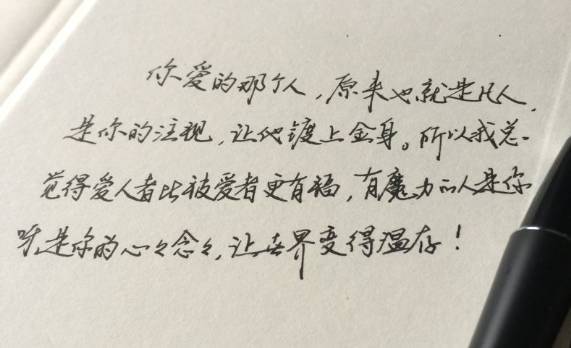 你爱的那个人，原来也就是凡人，
是你的注视，让他镀上金身。所以我总
觉得爱人者比被爱者更有福，有魔力的人是你
呀，是你的心々念々，让世界变得温存！